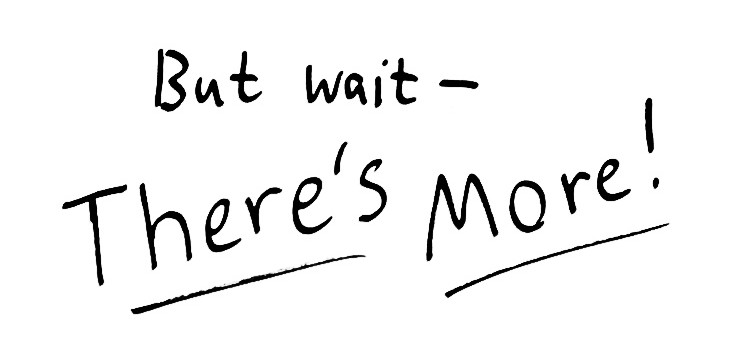 But wait –
There's More!